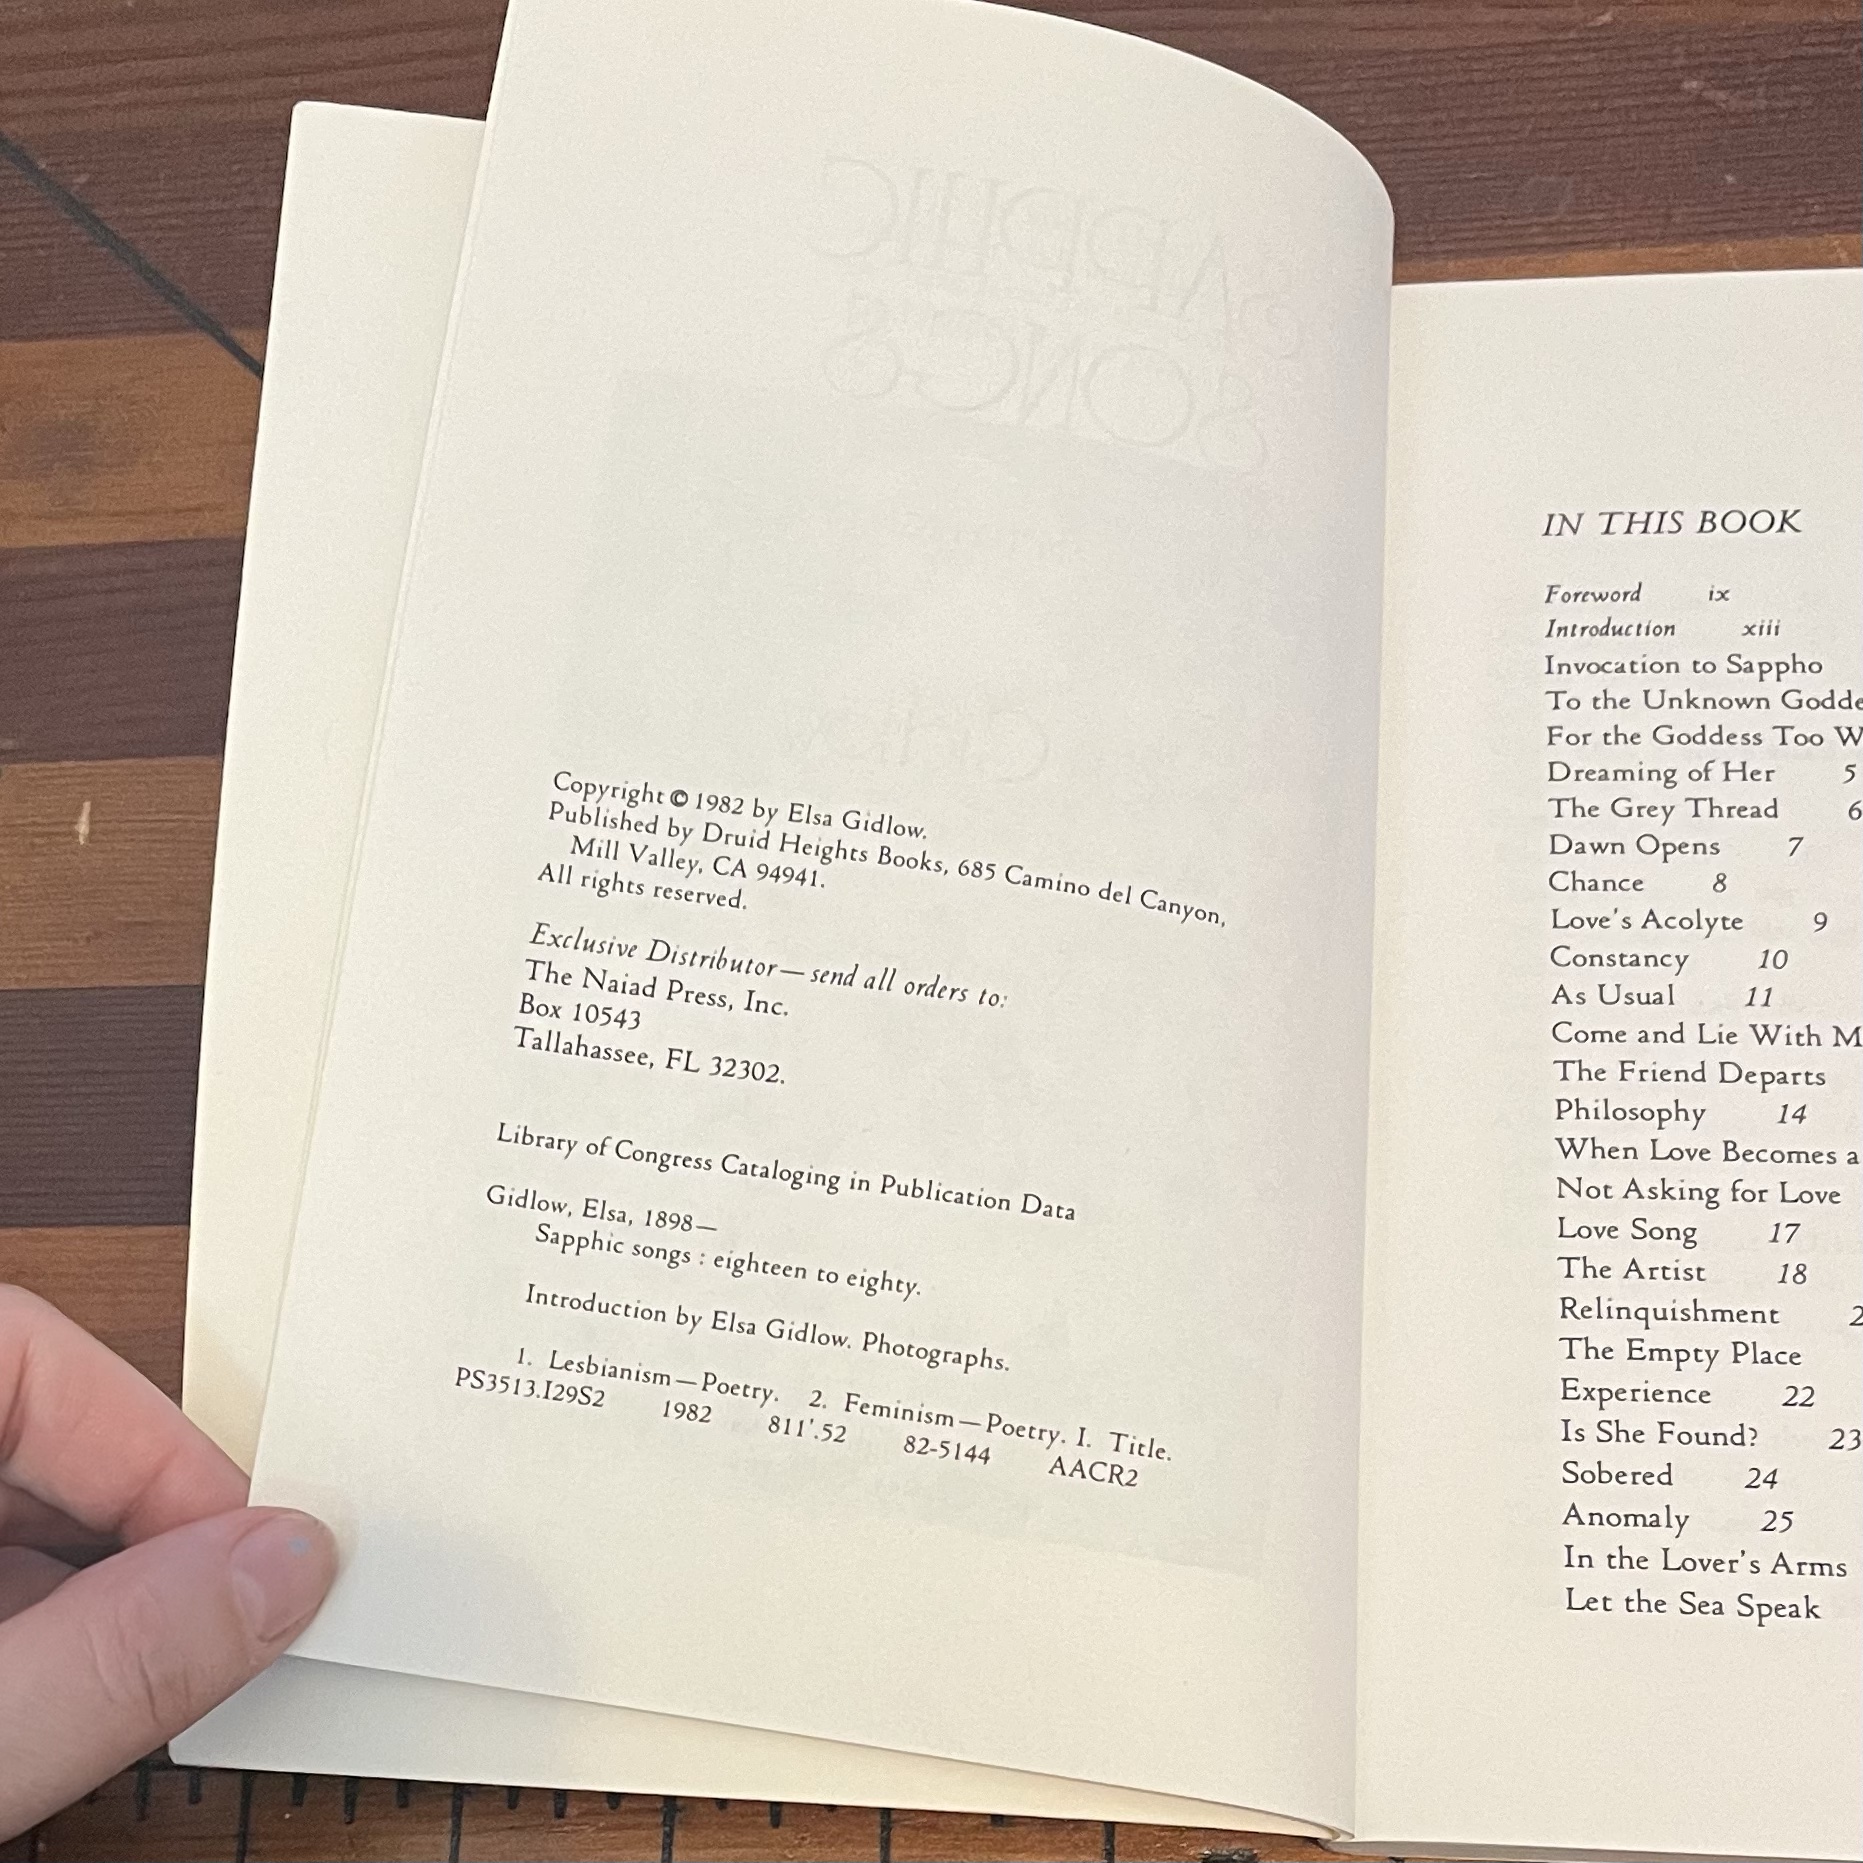 Copyright © 1982 by Elsa Gidlow.
Published by Druid Heights Books, 685 Camino del Canyon,
Mill Valley, CA 94941.
All rights reserved.
Exclusive Distributor—send all orders to:
The Naiad Press, Inc.
Box 10543
Tallahassee, FL 32302.
Library of Congress Cataloging in Publication Data
Gidlow, Elsa, 1898—
Sapphic songs : eighteen to eighty.
Introduction by Elsa Gidlow. Photographs.
1. Lesbianism—Poetry. 2. Feminism—Poetry. I. Title.
PS3513.I29S2 1982 811'.52 82-5144 AACR2
IN THIS BOOK
Foreword ix
Introduction xiii
Invocation to Sappho
To the Unknown Godde
For the Goddess Too W
Dreaming of Her 5
The Grey Thread 6
Dawn Opens 7
Chance 8
Love's Acolyte 9
Constancy 10
As Usual 11
Come and Lie With M
The Friend Departs
Philosophy 14
When Love Becomes a
Not Asking for Love
Love Song 17
The Artist 18
Relinquishment 2
The Empty Place
Experience 22
Is She Found? 23
Sobered 24
Anomaly 25
In the Lover's Arms
Let the Sea Speak